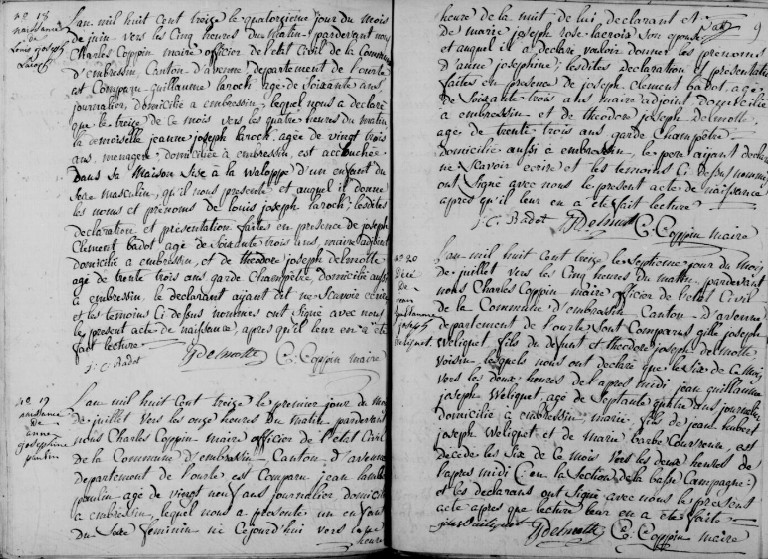 N.o 18
naissance
de
Louis joseph
Laroch
L'an mil huit Cent treize le quatorzieme jour du mois
de juin vers les Cinq heures du Matin, pardevant nous
Charles Coppin maire officier de l'etat Civil de la Commune
d'embressin, Canton d'avenne, departement de l'ourte
est Comparu guillaume laroch age de Soixante ans,
journalier, domicilié a embressin, lequel nous a declaré
que le treize de Ce mois vers les quatre heures du matin
la demerselle jeanne joseph laroch, agée de vingt trois
ans, menagere, domiciliée à embressin, est accouchée
Dans Sa Maison Sise à la waloppe d'un enfant du
Sexe masculin, qu'il nous presente et auquel il donne
les noms et prenoms de louis joseph laroch; lesdites
declaration et présentation faites en presence de joseph
Clement badot agé de Soixante trois ans, maire adjoint
domicilié a embressin, et de theodore joseph delmotte
agé de trente trois ans garde Champêtre, domicilié aussi
à embressin, le declarant aijant dit ne Scavoir écrire
et les temoins Ci dessus nommés ont Signé avec nous
le present acte de naissance, apres qu'il leur en a été
fait lecture.
J: C: Badot Tjdelmotte C: Coppin maire
N.o 19
naissance
de
anne
josephine
paulin
L'an mil huit Cent treize le premier jour du mois
de juillet vers les onze heures du Matin pardevant
nous Charles Coppin maire officier de l'etat Civil
de la Commune d'embressin, Canton d'avenne
departement de l'ourte est Comparu jean
paulin agé de vingt neuf ans journalier, domicilié
a embressin, lequel nous a presenté un enfant
du Sexe feminin né Cejourd'hui vers
heure
9
heure de la nuit de lui declarant et
de marie joseph rose lacroix Son epouse
et auquel il a declaré vouloir donner les prenoms
d'anne josephine; lesdites declaration et presentation
faites en presence de joseph Clement badot, agé
de Soixante trois ans maire adjoint domicilié
a embressin et de theodore joseph delmotte,
agé de trente trois ans garde Champêtre
domicilié aussi à embressin, le pere aijant declaré
ne Scavoir ecrire et les temoins Ci dessus nommés
ont Signé avec nous le present acte de naissance
apres qu'il leur en a été fait lecture
J: C: Badot Tjdelmotte C: Coppin maire
N.o 20
Décé
de
jean
guillaume
joseph
Weliquet.
L'an mil huit Cent treize le Septieme jour du mois
de juillet vers les Cinq heures du matin, pardevant
nous Charles Coppin maire officier de l'etat Civil
de la Commune d'embressin Canton d'avenne
departement de l'ourte Sont Comparus gille joseph
Weliquet fils du defunt et theodore joseph delmotte
voisin, lesquels nous ont declaré que le Six de Ce mois
vers les deux heures de l'apres midi jean guillaume
joseph Weliquet, agé de Septante quatre ans journalier
domicilié a embressin, marié, fils de jean hubert
joseph Weliquet et de marie barbe est
decede les Six de Ce mois vers les deux heures de
l'apres midi en la Section de la basse Campagne
et les declarans ont Signé avec nous le present
acte apres que lecture leur en a été faite
Tjdelmotte C: Coppin maire